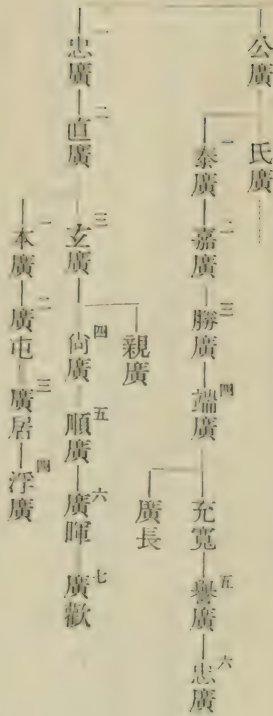 公廣
氏廣
一泰廣 二嘉廣 三勝廣 四端廣 充寬 五譽廣 六忠廣
廣長
一忠廣 二直廣 三玄廣 四尙廣 五順廣 六廣暉 七廣歡
親廣
一本廣 二廣屯 三廣居 四浮廣